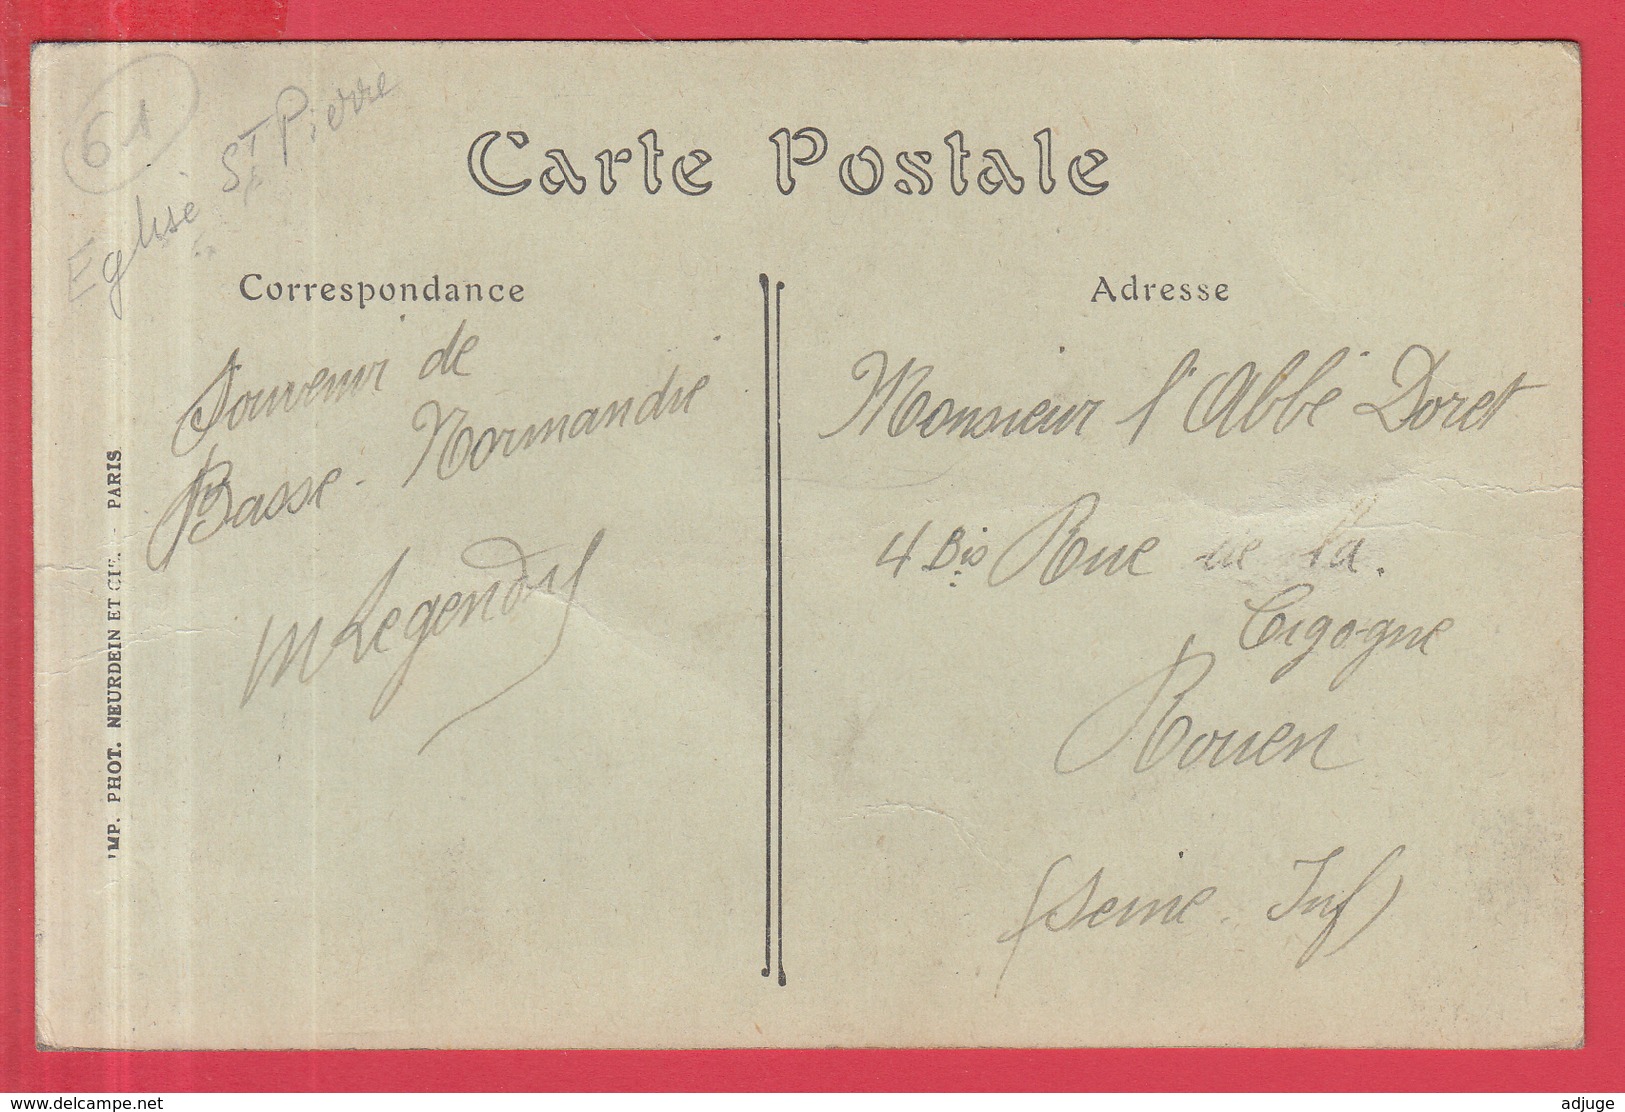 61
Eglise St Pierre
Carte Postale
Correspondance
Souvenir de
Basse-Normandie
M Legendy
Adresse
Monsieur l'Abbé Doret
4 Bis Rue de la
Cigogne
Rouen
(Seine-Inf)
IMP. PHOT. NEURDEIN ET CIE. - PARIS
www.delcampe.net
adjuge